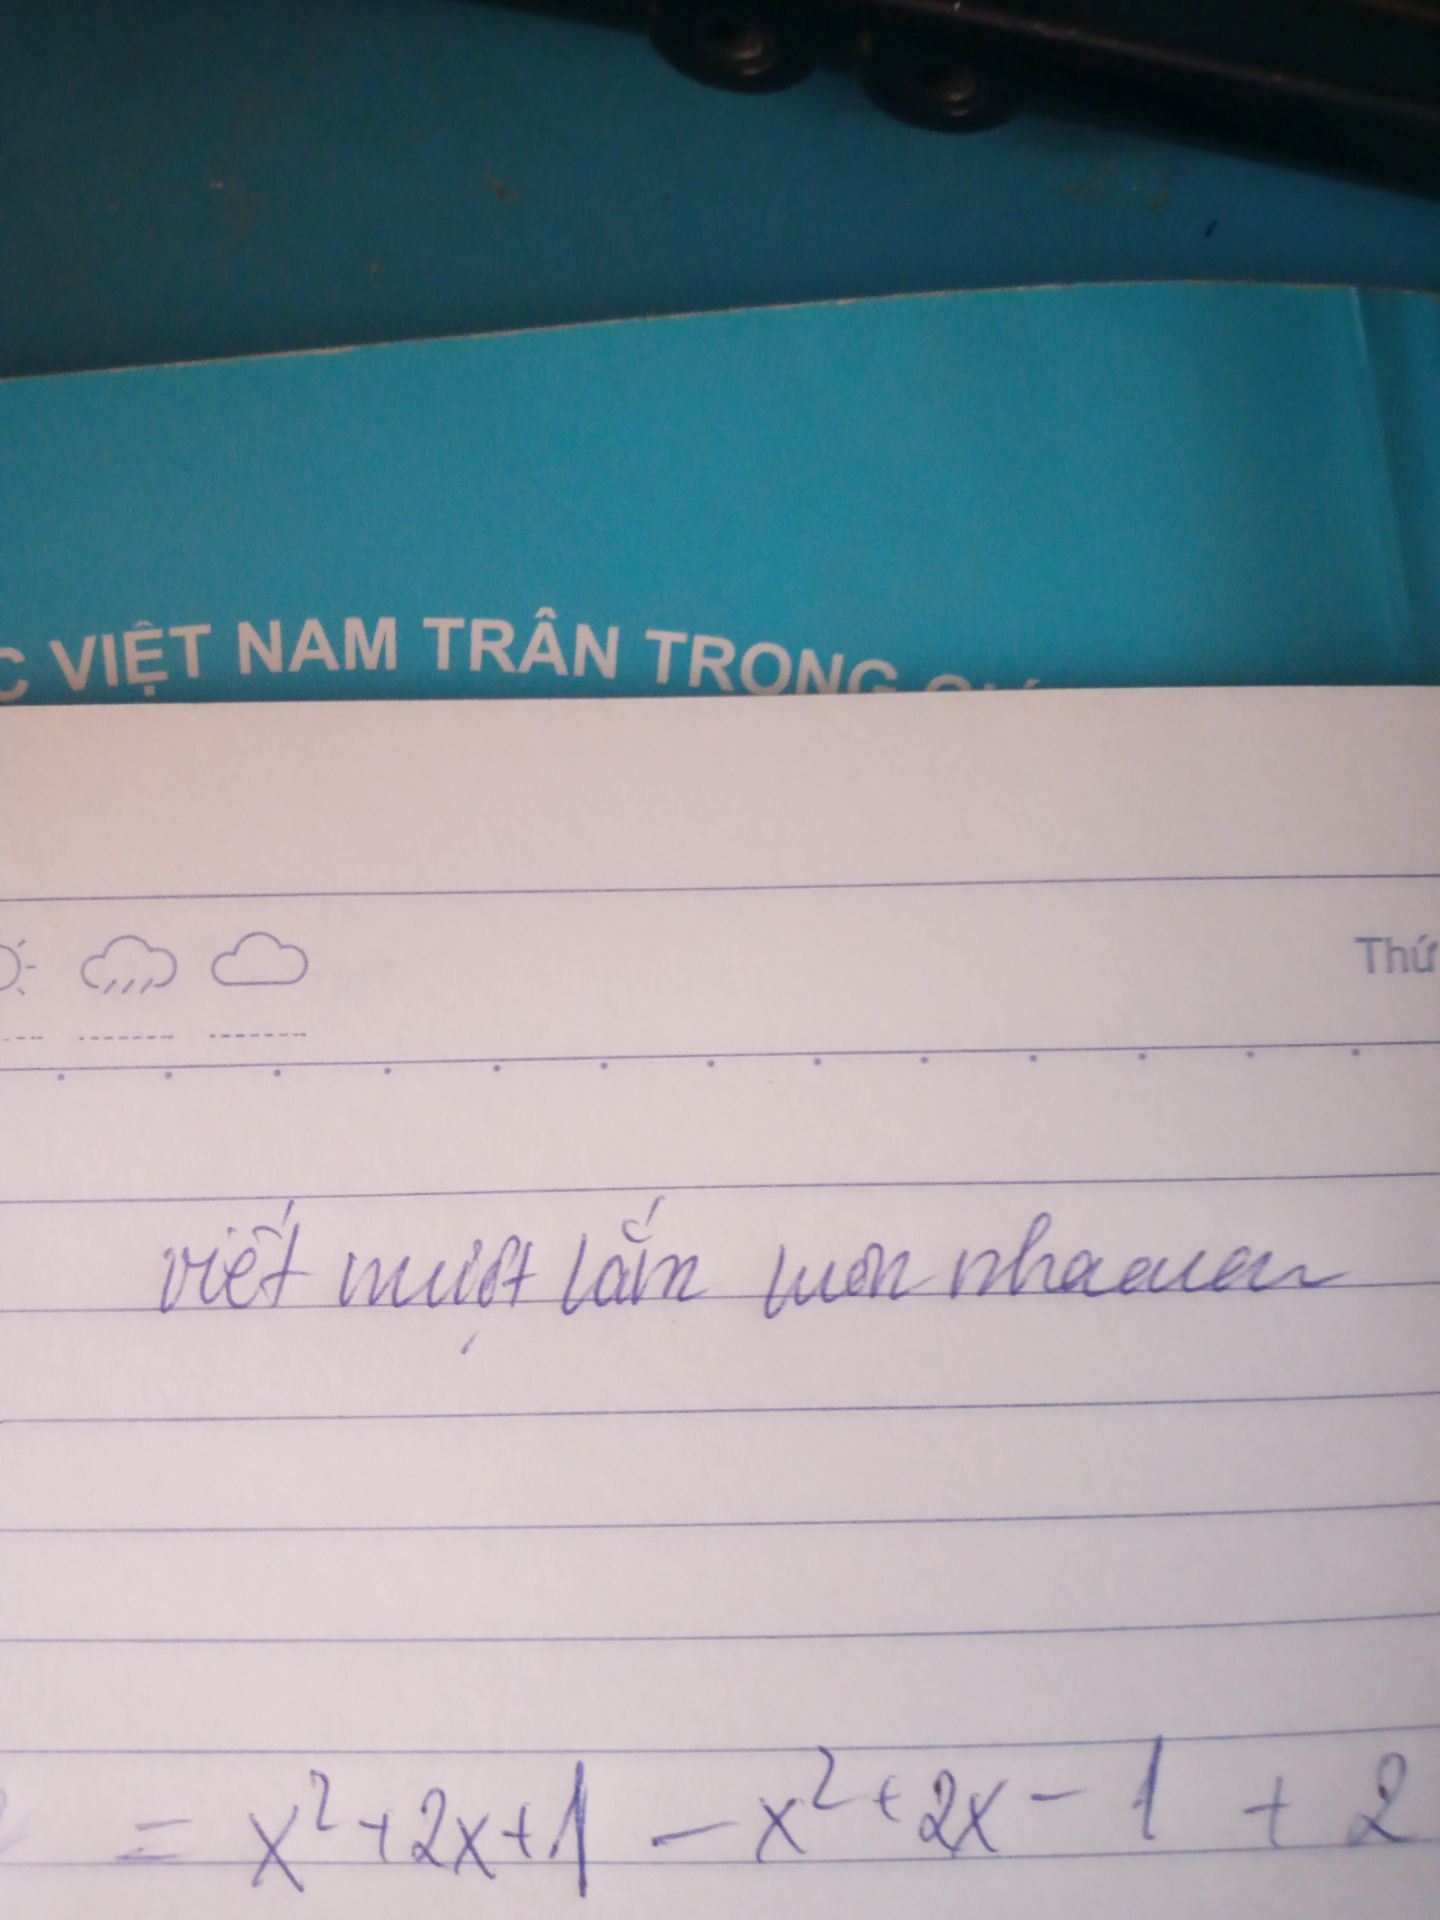 C VIỆT NAM TRÂN TRỌNG
Thứ
viết mượt lắm luôn nhaaaa
= x²+2x+1 - x²+2x-1 + 2